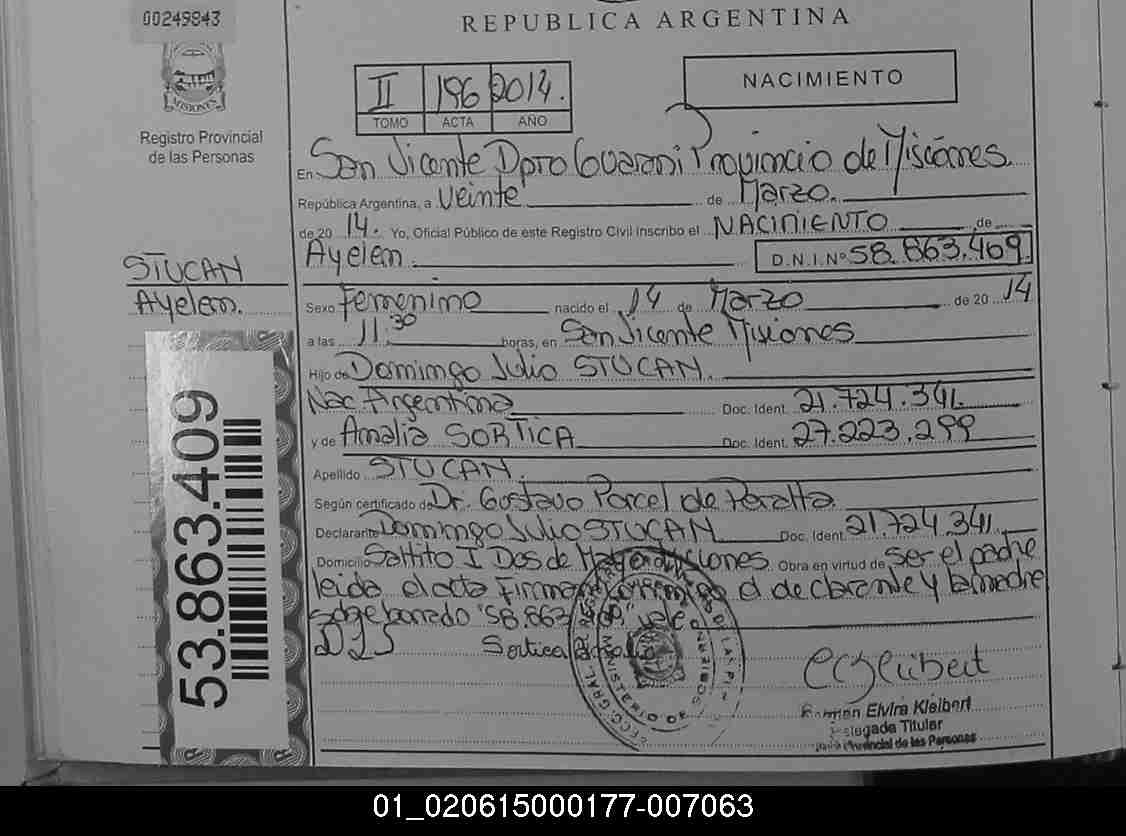 00249843
REPUBLICA ARGENTINA
MISIONES
Registro Provincial
de las Personas
II 196 2014.
TOMO ACTA AÑO
NACIMIENTO
En San Vicente Dpto Guarani Provincia de Misiones
República Argentina, a veinte de Marzo.
de 20 14. Yo, Oficial Público de este Registro Civil inscribo el NACIMIENTO de
Ayelen. D.N.I.Nº 58.863.409
STUCAN
Ayelen.
Sexo Femenino nacido el 14 de Marzo de 20 14
a las 11:30 horas, en San Vicente Misiones
Hijo de Domingo Julio STUCAN.
Nac Argentina Doc. Ident. 21.724.341.
y de Amalia SORTICA Doc. Ident. 27.223.299
Apellido STUCAN.
Según certificado de Dr. Gustavo Porcel de Peralta
Declarante Domingo Julio STUCAN Doc. Ident. 21.724.341.
Domicilio Saltito I Dos de Misiones. Obra en virtud de ser el padre
leida el acta Firman conmigo el declarante y la madre
borrado "58.863 vale
DJS Sortica
53.863.409
Elvira Kleibert
Delegada Titular
Provincial de las Personas
01_020615000177-007063